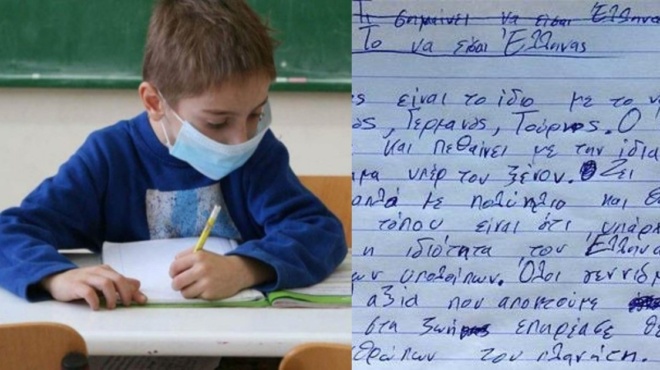 Τι σημαίνει να είσαι Έλληνας
Το να είσαι Έλληνας
είναι το ίδιο με το ν
ος, Γερμανός, Τούρκος. Ο
και πεθαίνει με την ίδια
υπέρ του ξένου. Ζει
με πολύπλο και θ
τόπου είναι ότι υπάρχ
η ιδιότητα του Έλληνα
ων υπολοίπων. Όλοι γεννιό
αξία που αποκτούμε
στα ζωή επηρέασε θε
θρώπων του πλανήτη.